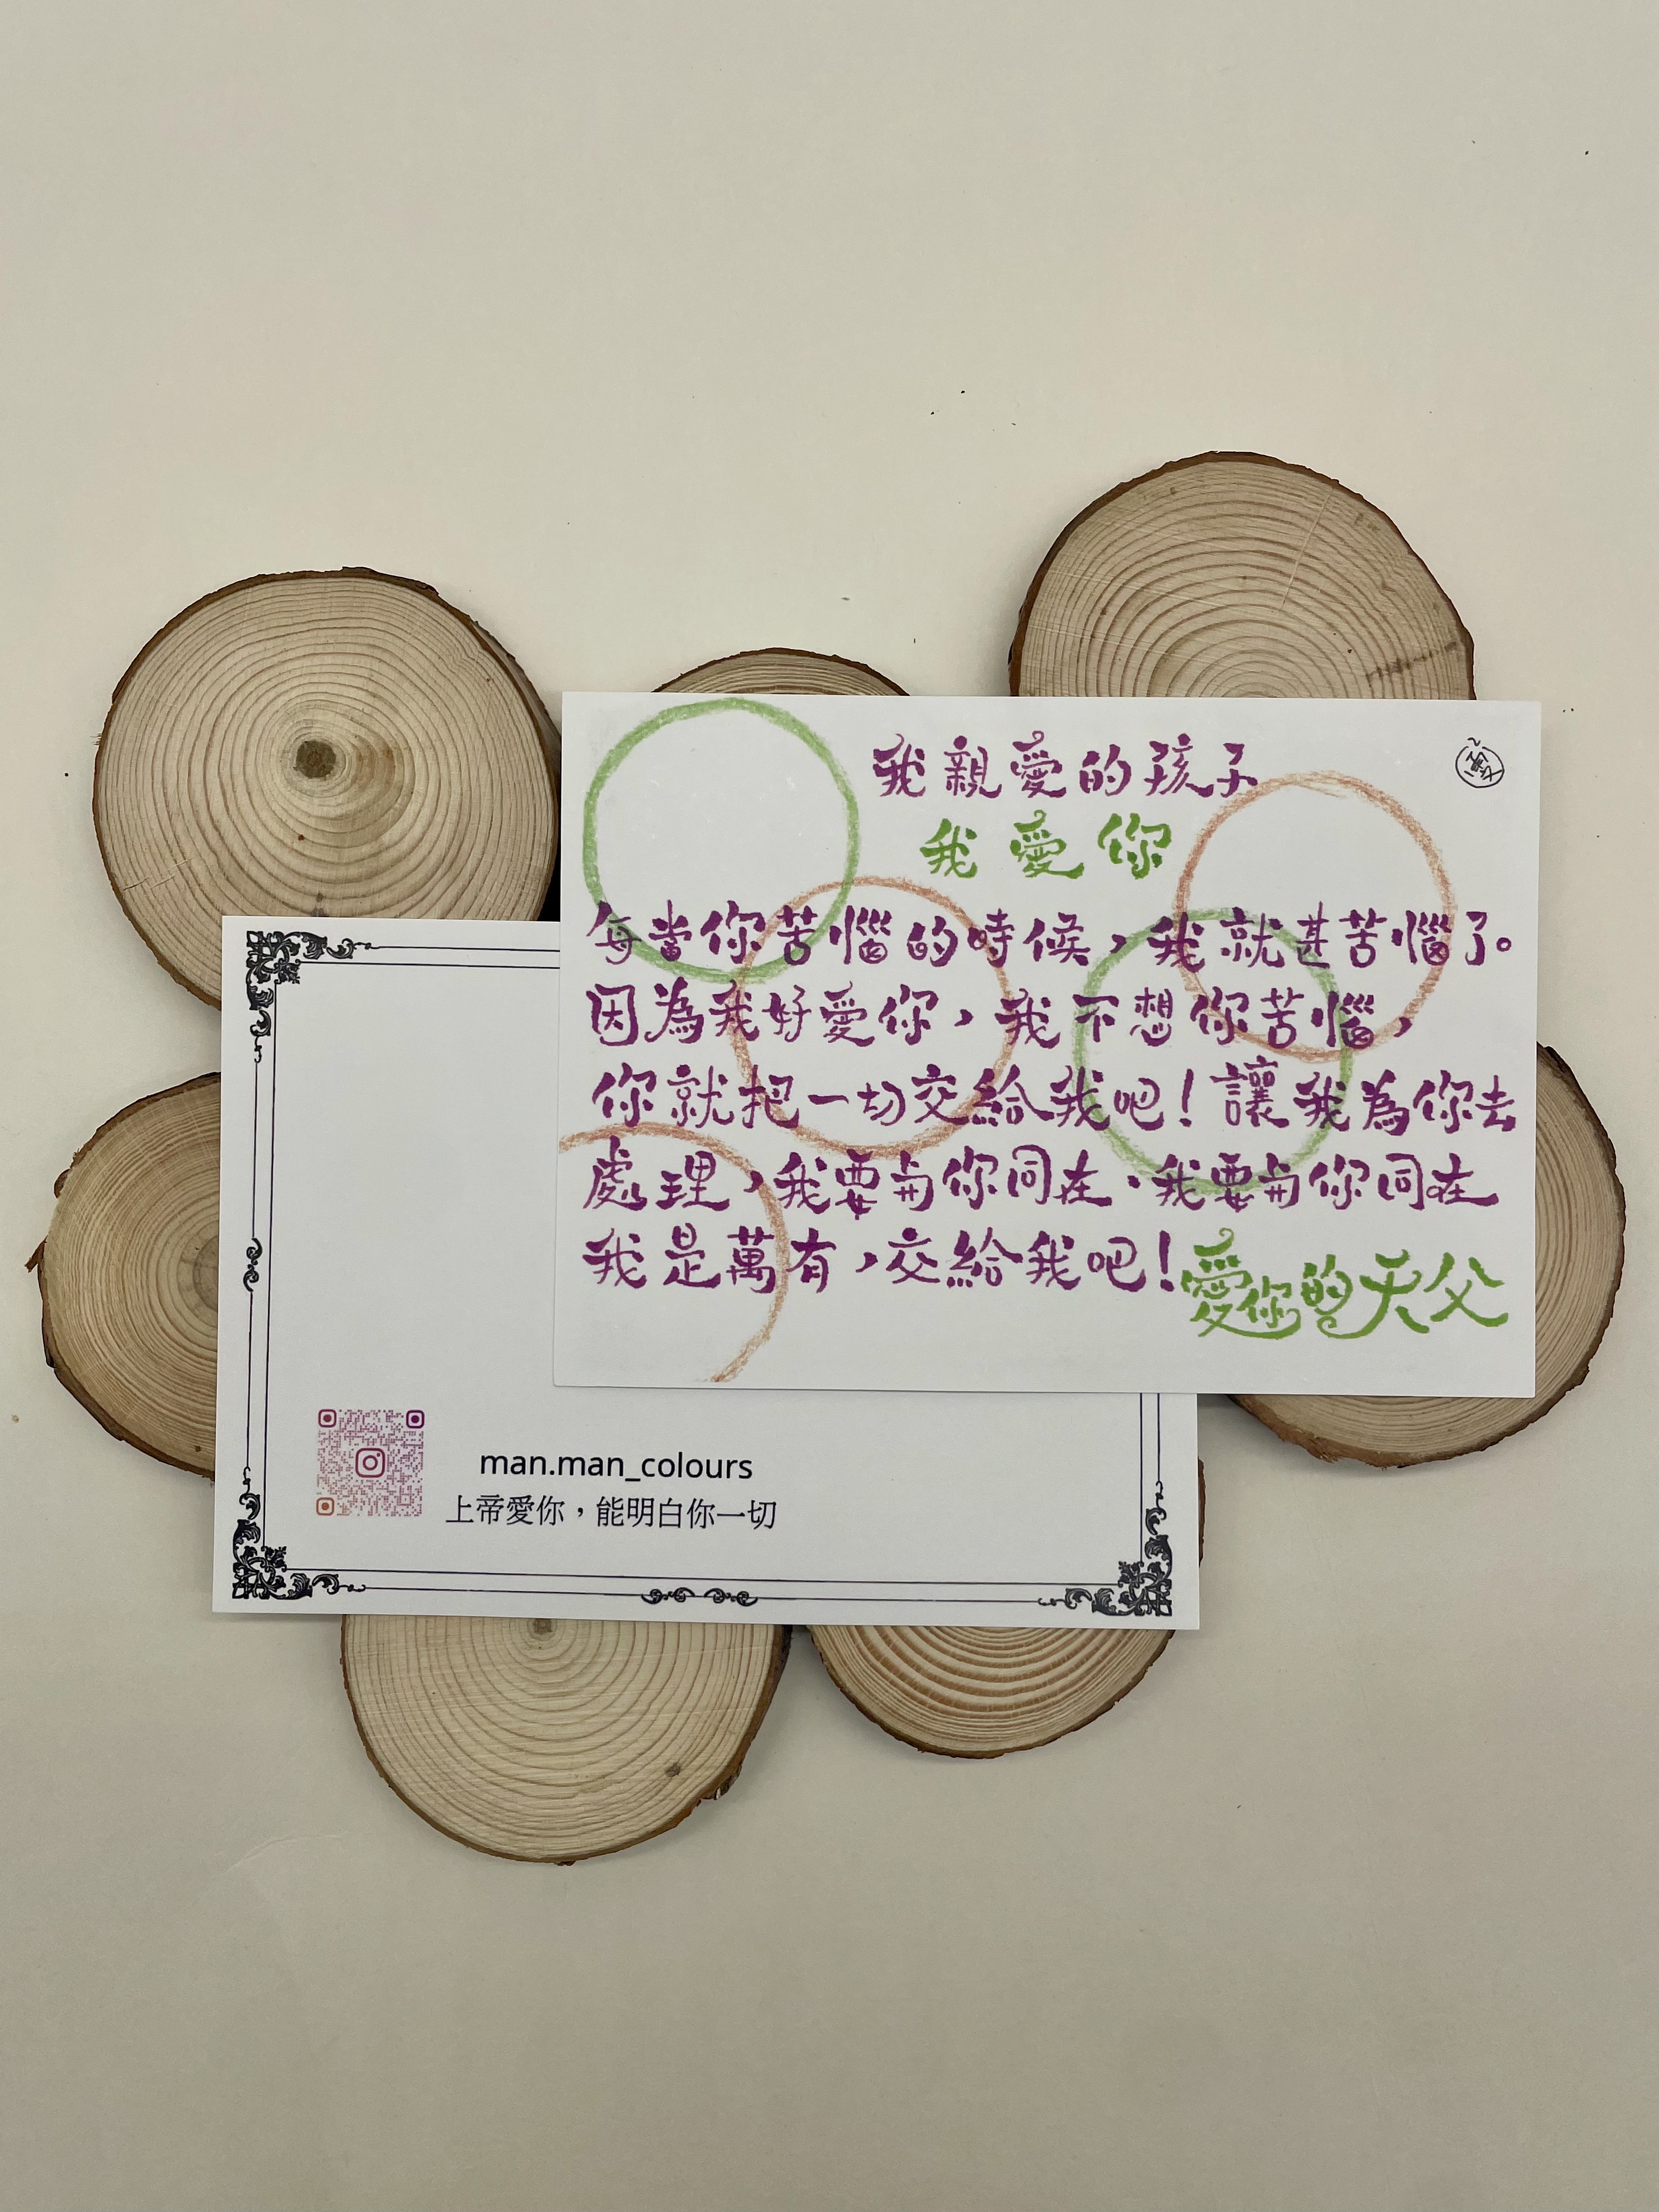 我親愛的孩子
我愛你
每當你苦惱的時候，我就甚苦惱了。
因為我好愛你，我不想你苦惱，
你就把一切交給我吧！讓我為你去
處理，我要與你同在，我要與你同在
我是萬有，交給我吧！
愛你的天父
man.man_colours
上帝愛你，能明白你一切